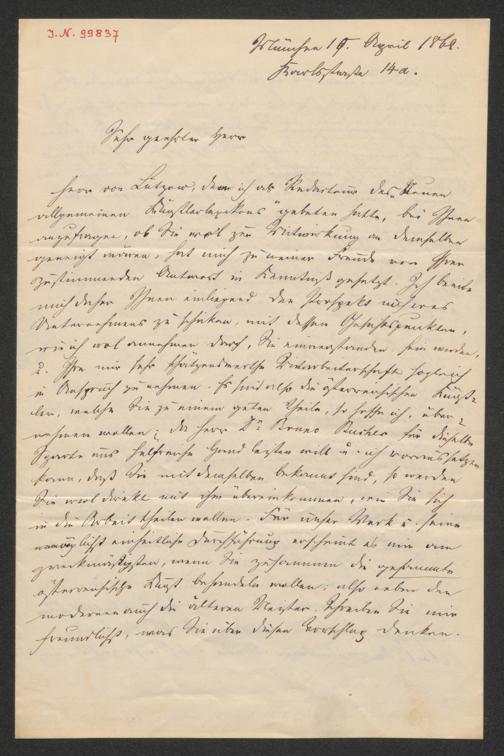 J. N. 99837
München 19. April 1868.
Karlstraße 14a.
Sehr geehrter Herr
Herr von Lützow, den ich als Redacteur des „Neuen
allgemeinen Künstlerlexikons" gebeten hatte, bei Ihnen
anzufragen, ob Sie wol zur Mitwirkung an demselben
geneigt wären, hat mich zu meiner Freude von Ihrer
zustimmenden Antwort in Kenntniß gesetzt. Ich beeile
mich daher Ihnen einliegend den Prospekt unseres
Unternehmens zu schicken, mit dessen Gesichtspunkten,
wie ich wol annehmen darf, Sie einverstanden sein werden,
u. Ihre mir sehr schätzenswerthe Mitarbeiterschaft sogleich
in Anspruch zu nehmen. Es sind also die österreichischen Künst-
ler, welche Sie zu einem guten Theile, so hoffe ich, über-
nehmen wollen; da Herr Dr Bruno Bucher für dieselbe
Sparte uns hülfreiche Hand leisten will u. ich voraussetzen
kann, daß Sie mit demselben bekannt sind, so werden
Sie wol direkt mit ihm übereinkommen, wie Sie sich
in die Arbeit theilen wollen. Für unser Werk u. seine
möglichst einheitliche Durchführung erscheint es mir am
zweckmäßigsten, wenn Sie zusammen die gesammte
österreichische Kunst behandeln wollen: also neben den
modernen auch die älteren Meister. Schreiben Sie mir
freundlichst, was Sie über diesen Vorschlag denken.